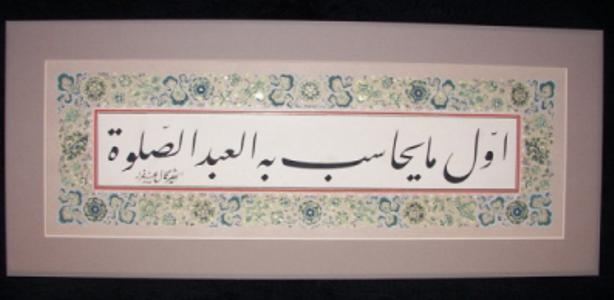 اوّل مايحاسب به العبد الصّلوة